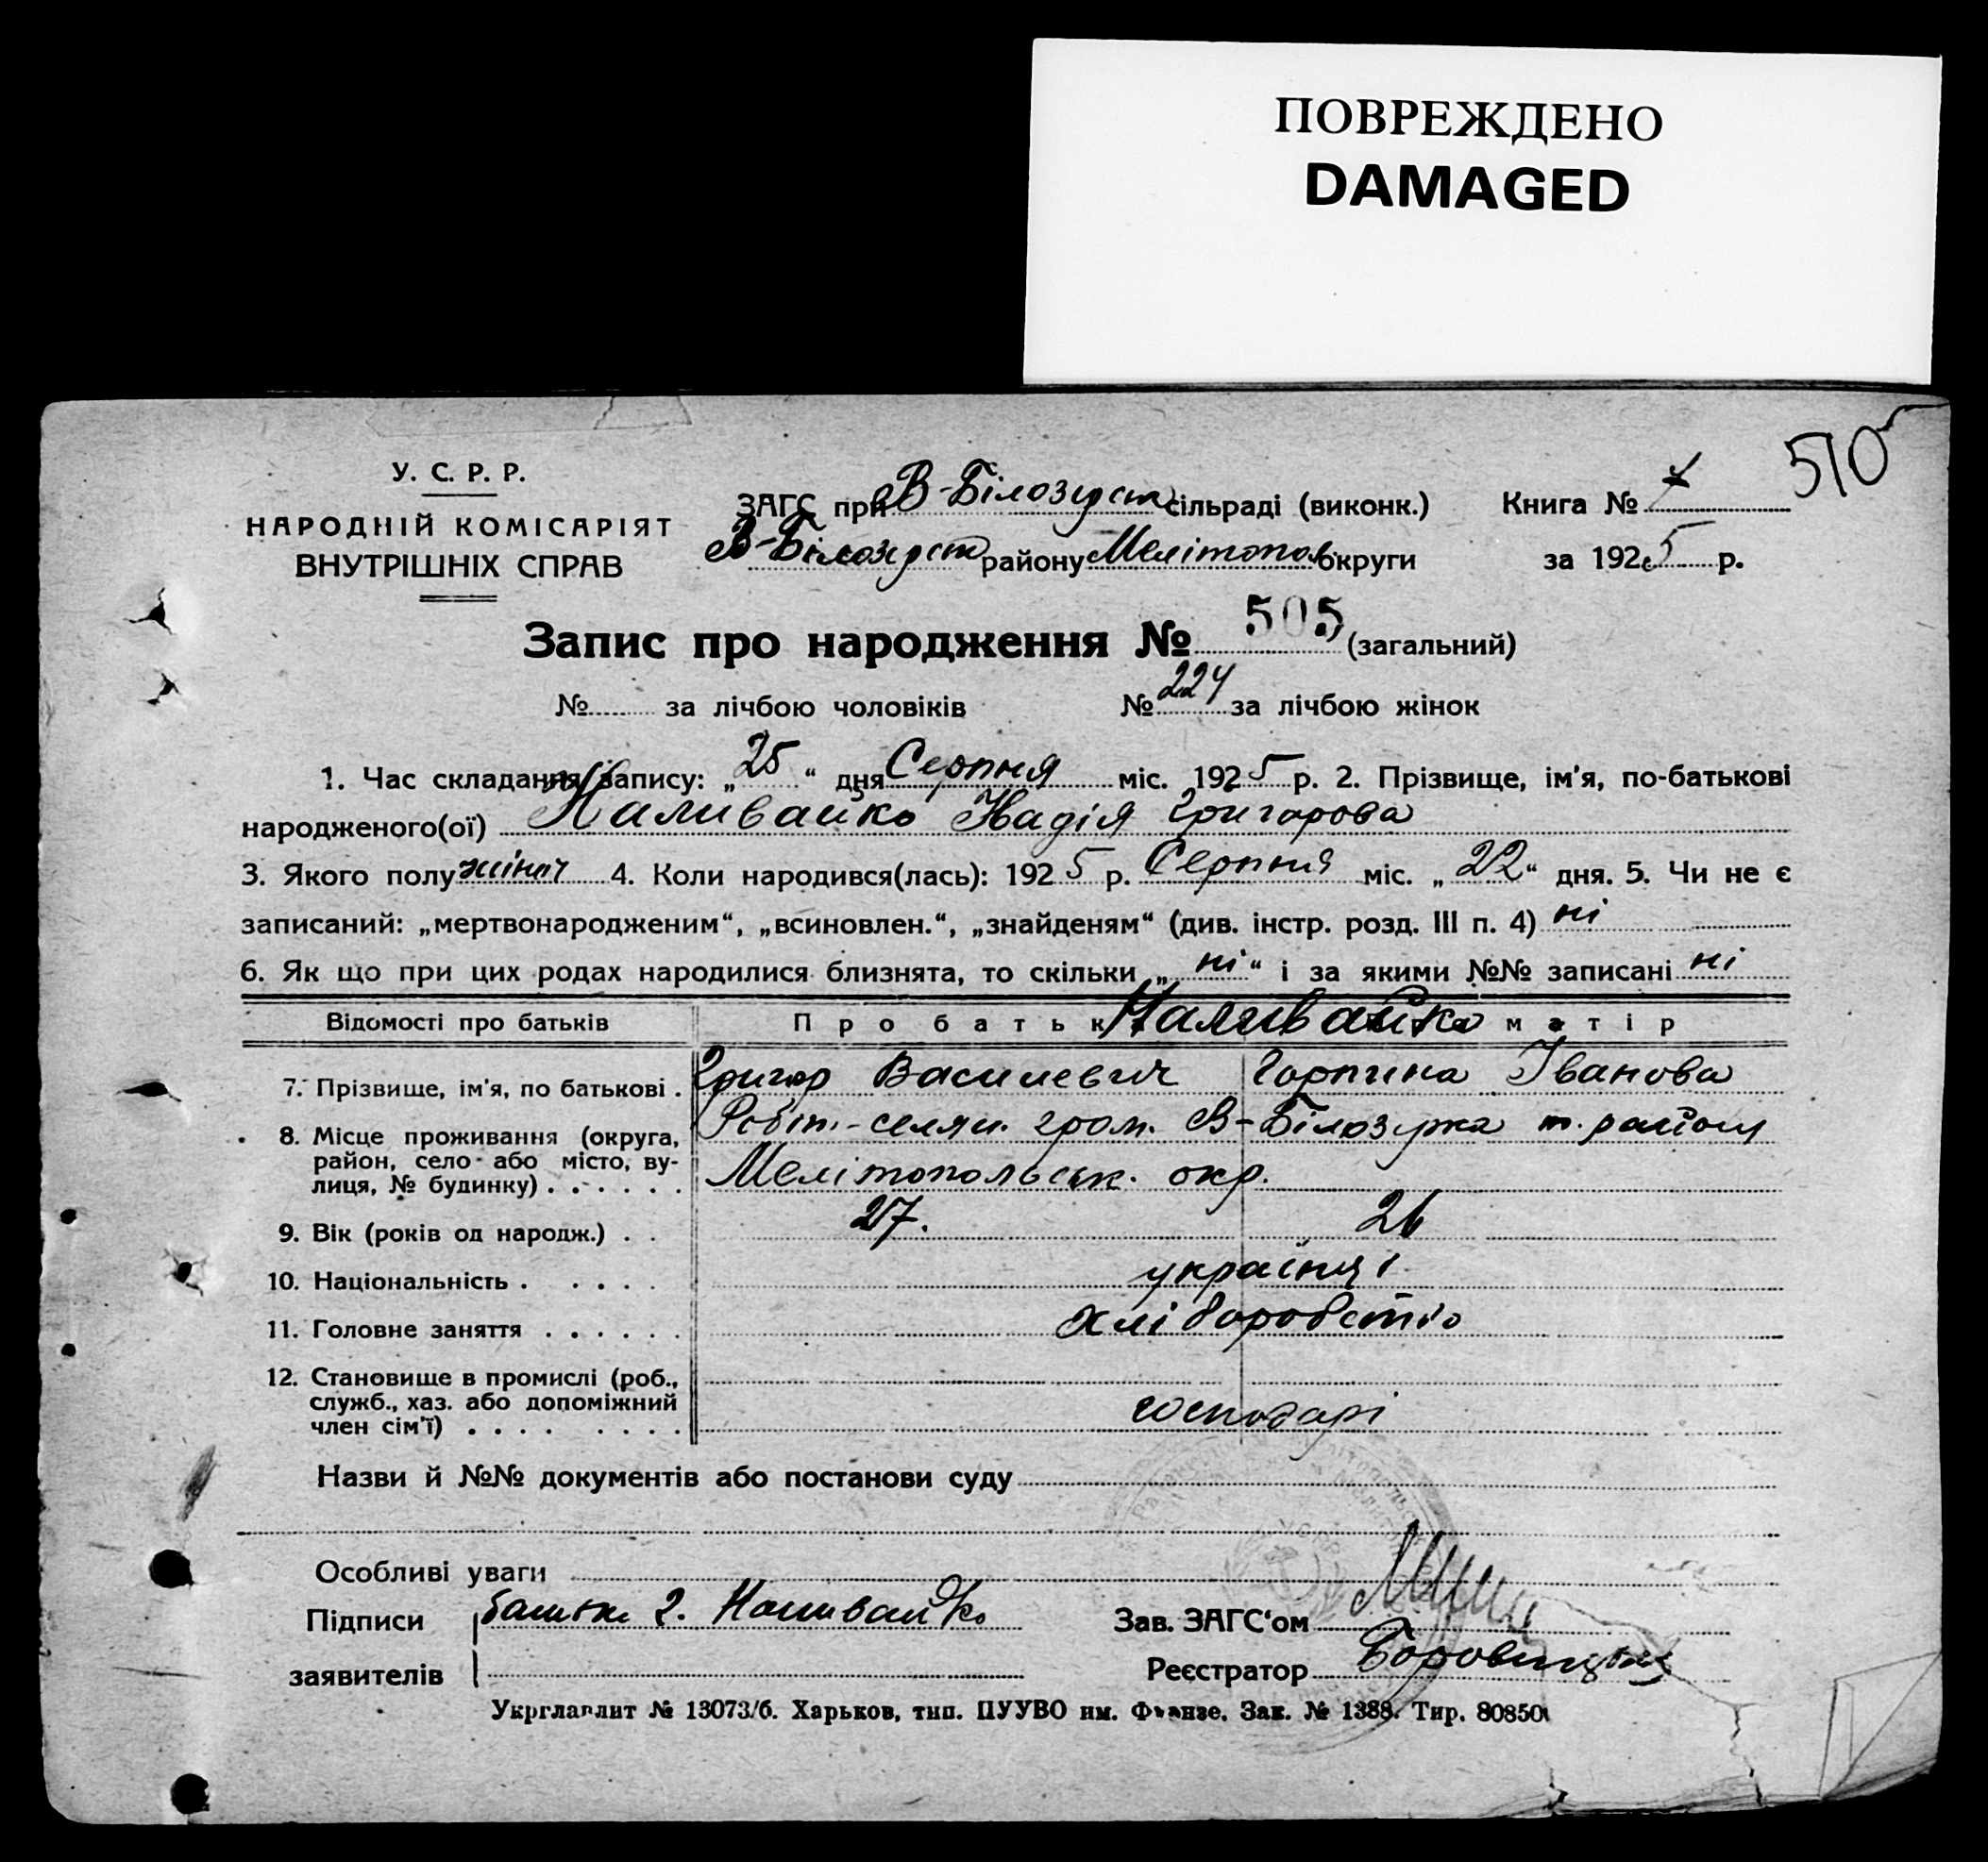 ПОВРЕЖДЕНО
DAMAGED
510
У. С. Р. Р.
НАРОДНІЙ КОМІСАРІЯТ
ВНУТРІШНІХ СПРАВ
ЗАГС при В-Білозерск сільраді (виконк.) Книга №
В-Білозерск району Мелітопол округи за 1925 р.
Запис про народження № 505 (загальний)
№ за лічбою чоловіків № 224 за лічбою жінок
1. Час складання запису: „25“ дня Серпня міс. 1925 р. 2. Прізвище, ім'я, по-батькові
народженого(ої) Наливайко Надія Григорова
3. Якого полу жіноч 4. Коли народився(лась): 1925 р. Серпня міс. „22“ дня. 5. Чи не є
записаний: „мертвонародженим“, „всиновлен.“, „знайденям“ (див. інстр. розд. III п. 4) ні
6. Як що при цих родах народилися близнята, то скільки „ні“ і за якими №№ записані ні
Відомості про батьків Про батьк Наливайко матір
7. Прізвище, ім'я, по батькові . Григор Василевич Горпина Іванова
8. Місце проживання (округа, Робіт.-селян. гром. В-Білозерка т. району
район, село або місто, ву-
лиця, № будинку) . . . . . . Мелітопольськ. окр.
9. Вік (років од народж.) . . 27. 26
10. Національність . . . . . українці
11. Головне заняття . . . . . . хліборобство
12. Становище в промислі (роб.,
служб., хаз. або допоміжний
член сім'ї) . . . . . . . . господарі
Назви й №№ документів або постанови суду
Особливі уваги
Підписи батьк Г. Наливайко Зав. ЗАГС'ом
заявителів Реєстратор
Укрглавлит № 13073/б. Харьков, тип. ПУУВО им. Фрунзе. Зак. № 1388. Тир. 80850